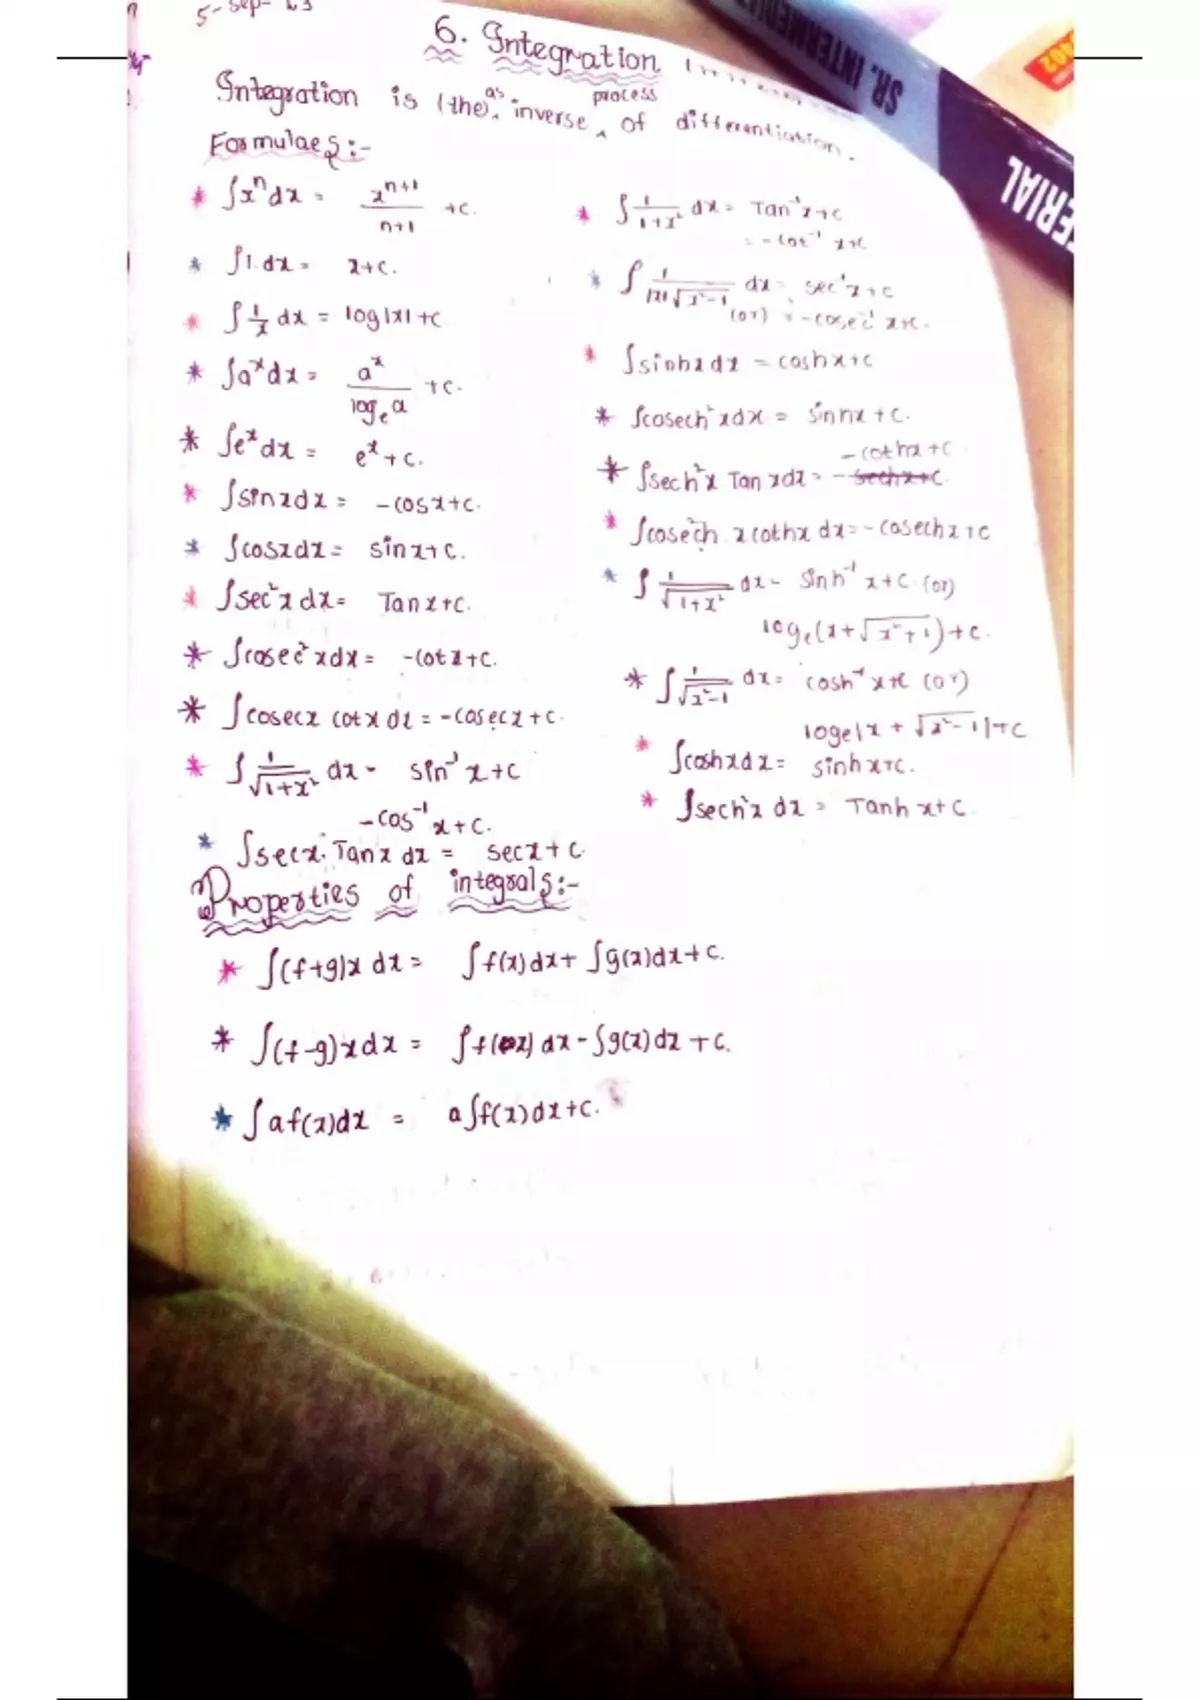 5-Sep-23
6. Integration
Integration is (the) as inverse process of differentiation.
Formulaes:-
* ∫xⁿdx = xⁿ⁺¹/n+1 +c.
* ∫1.dx = x+c.
* ∫1/x dx = log|x|+c
* ∫aˣdx = aˣ/logₑa +c.
* ∫eˣdx = eˣ+c.
* ∫sinxdx = -cosx+c.
* ∫cosxdx = sinx+c.
* ∫sec²x dx = Tanx+c.
* ∫cosec²xdx = -cotx+c.
* ∫cosecx cotx dx = -cosecx+c.
* ∫1/√1+x² dx = sin⁻¹x+c
-cos⁻¹x+c.
* ∫secx.Tanx dx = secx+c.
* ∫1/1+x² dx = Tan⁻¹x+c
= -cot⁻¹ x+c
* ∫1/|x|√x²-1 dx = sec⁻¹x+c
(or) = -cosec⁻¹ x+c.
* ∫sinhxdx = coshx+c
* ∫cosech²xdx = sinhx+c.
-cothx+c
* ∫sech²x Tanxdx = -sechx+c.
* ∫cosech.xcothx dx = -cosechx+c
* ∫1/√1+x² dx = sinh⁻¹ x+c (or)
logₑ(x+√x²+1)+c.
* ∫1/√x²-1 dx = cosh⁻¹x+c (or)
loge|x+√x²-1|+c
* ∫coshxdx = sinhx+c.
* ∫sech²x dx = Tanh x+c.
Properties of integrals:-
* ∫(f+g)x dx = ∫f(x)dx+ ∫g(x)dx+c.
* ∫(f-g)xdx = ∫f(x) dx-∫g(x)dx +c.
* ∫af(x)dx = a∫f(x)dx+c.
SR. INTERMEDI
ERIAL
402